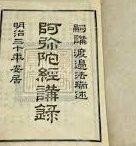 嗣講渡邊法瑞述
阿弥陀經講録
明治三十年安居